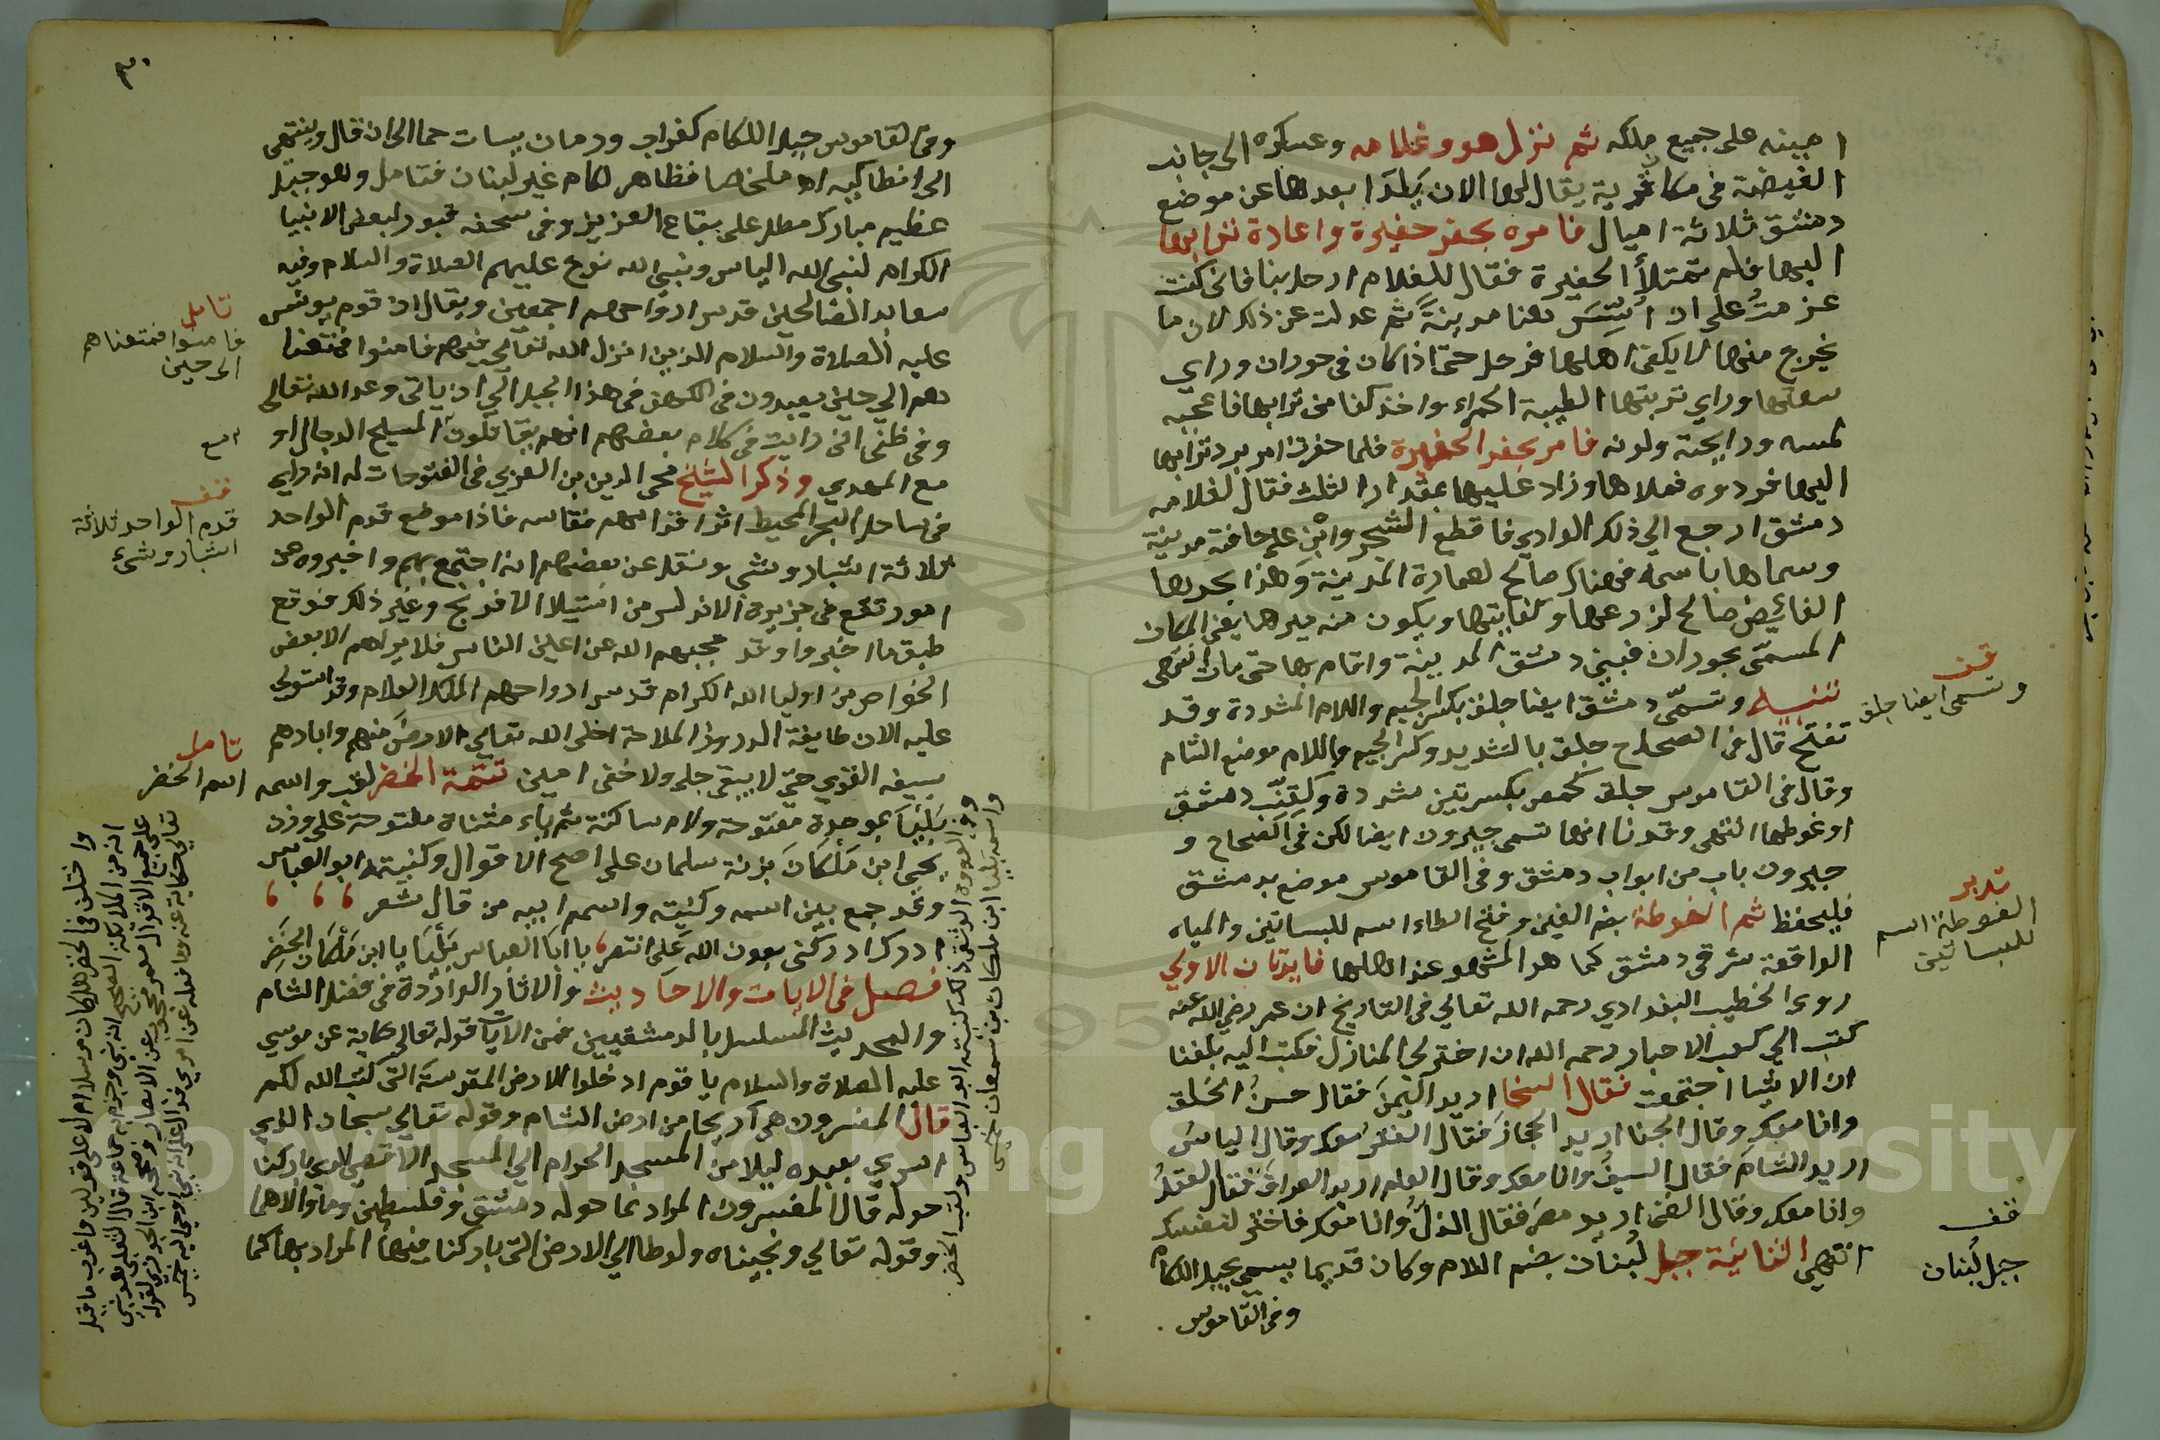 امينه على جميع ملكه ثم نزل هو وغلامه وعسكره الى جانب
الغيضة في مكان قرية يقال لها الان يلدا بعدها عن موضع
دمشق ثلاثة اميال فامره بحفر حفيرة واعادة ترابها
اليها فلم تمتلأ الحفيرة فقال للغلام ارحل بنا فاني كنت
عزمت على ان أسّس هنا مدينة ثم عدلت عن ذلك لان ما
يخرج منها لا يكفي اهلها فرحل حتى اذا كان في حوران وراي
سعتها وراي تربتها الطيبة الحمراء واخذ كفا من ترابها فاعجبه
لمسه ورايحته ولونه فامر بحفر الحفيرة فلما حفرت امر برد ترابها
اليها فردوه فملاها وزاد عليها بمقدار الثلث فقال لغلامه
دمشق ارجع الي ذلك الوادي فاقطع الشجر وابْنِ على حافته مدينة
وسماها باسمه فهناك صالح لعمارة المدينة وهذا بحرها
الفائيض صالح لزرعها وكفايتها ويكون منه ميرها يعني المكان
المسمّى بحوران فبني دمشق المدينة واقام بها حتى مات انتهى
تنبيه وتسمّى دمشق ايضا جلق بكسر الجيم واللام المشددة وقد
تفتح قال في الصحاح جلق بالتشديد وكسر الجيم واللام موضع الشام
وقال في القاموس جلق كحمص بكسرتين مشددة وكقنّب دمشق
او غوطها انتهى وقدنا انها تسمى جيرون ايضا لكن في الصحاح و
جيرون باب من ابواب دمشق وفي القاموس موضع بدمشق
فليحفظ ثم الغوطة بضم الغين وفتح الطاء اسم للبساتين والمياه
الواقعة شرقي دمشق كما هو المشهو عند اهلها فايدتان الاولى
روى الخطيب البغدادي رحمه الله تعالي في التاريخ ان عمر رضي الله عنه
كتب الي كعب الاحبار رحمه الله ان اختر لي المنازل فكتب اليه بلغنا
ان الاشيا اجتمعت فقال السخا اريد اليمن فقال حسن الخلق
وانا معك وقال الجفا اريد الحجاز فقال الفقر وانا معك وقال الباس
اريد الشام فقال السيف وانا معك وقال العلم اريد العراق فقال العقل
وانا معك وقال الغنى اريد مصر فقال الذل وانا معك فاختر لنفسك
انتهي الثنائية جبل لبنان بضم اللام وكان قديما يسمي بجبل اللكام
وفي القاموس
قف
وتسمى ايضا جلق
تدبر
الغوطة اسم
للبساتين
قف
جبل لبنان
٣٠
وفي القاموس جبل اللكام كغراب ورمان يسامت حماة الى ان قال وينتهى
الى انطاكيه اه ملخصا فظاهر لكام غير لبنان فتامل وهو جبل
عظيم مبارك مطل على بقاع العزيز وفي سحفه قبور لبعض الانبيا
الكرام لنبي الله الياس ونبي الله نوح عليهم الصلاة والسلام وفيه
معابد الصالحين قدس ارواحهم اجمعين ويقال ان قوم يونس
عليه الصلاة والسلام الذين انزل الله تعالى فيهم فامنوا فمتعنا
هم الي حين يعبدون في الكهف في هذا الجبل الي ان ياتى وعد الله تعالى
وفي ظني اني رايت في كلام بعضهم انهم يقاتلون المسيح الدجال او
مع المهدي وذكر الشيخ محي الدين بن العربي في الفتوحات له انه راي
في ساحل البحر المحيط اثر اقدامهم فقاسه فاذا موضع قدم الواحد
ثلاثة اشبار وشي ونقل عن بعضهم انه اجتمع بهم واخبروه عن
امور تقع في جزيرة الاندلس من استيلا الافرنج وغير ذلك فوقع
طبق ما اخبروا وقد حجبهم الله عن اعين الناس فلا يراهم الا بعض
الخواص من اوليا الله الكرام قدس ارواحهم الملك العلام وقد استولي
عليه الان طايفة الدروز الملاحة اخلى الله تعالي الارض منهم وابادهم
بسيفه القوي حتى لا يبقى جلي ولا خفى امين تتمة الخضر لقب واسمه
بَلْيَا بموحدة مفتوحة ولام ساكنة ثم ياء مثناة مفتوحة على وزن
يحيى ابن مَلْكَانَ بزنة سلمان على اصح الاقوال وكنيته ابو العباس
وقد جمع بين اسمه وكنيته واسم ابيه من قال شعر
ادرك ادركني بعون الله على انتصر يا ابا العباس بَلْيَا يا ابن مَلْكَان الخَضِر
فصل في الايات والاحاديث والاثار الواردة في فضل الشام
والحديث المسلسل بالدمشقيين فمن الايات قوله تعالى حكاية عن موسي
عليه الصلاة والسلام يا قوم ادخلوا الارض المقدسة التي كتب الله لكم
قال المفسرون هي اريحا من ارض الشام وقوله تعالي سبحان الذي
اسري بعبده ليلا من المسجد الحرام الي المسجد الاقصي الذي باركنا
حوله قال المفسرون المراد بما حوله دمشق وفلسطين وما والاهما
وقوله تعالي ونجيناه ولوطا الي الارض التي باركنا فيها المراد بها كما
تامل
فامنوا فمتعناهم
الى حين
قف
قدم الواحد ثلاثة
اشبار وشئ
تامل
اسم الخضر
واختلف في الخضر هل كان مرسلا ام لا على قولين واغرب ما قيل
انه من الملائكة والصحيح انه نبي وجزم به جماعة قال الثعلبي هو نبي
على جميع الاقوال معمر محجوب عن الابصار وصححه ابن الجوزي لقوله
تعالى حكاية عنه وما فعلته عن امري فدل على انه نبي اوحي اليه
Copyright © King Saud University
1957